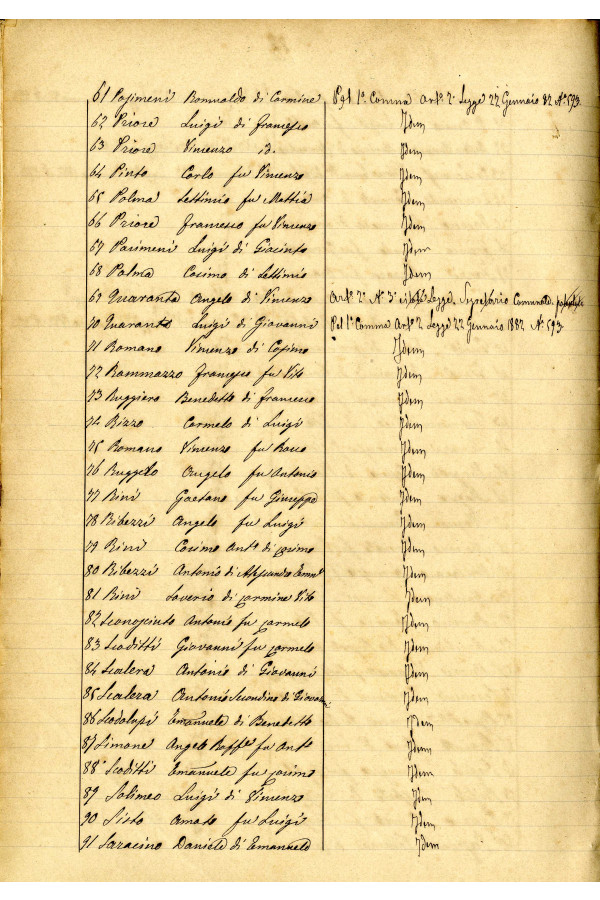 61 Pasimeni Romualdo di Carmine Pel 1º Comma Artº 2º Legge 22 Gennaio 82 Nº 593
62 Priore Luigi di Francesco Idem
63 Priore Vincenzo id. Idem
64 Pinto Carlo fu Vincenzo Idem
65 Palma Settimio fu Mattia Idem
66 Priore Francesco fu Vincenzo Idem
67 Pasimeni Luigi di Giacinto Idem
68 Palma Cosimo di Settimio Idem
69 Quaranta Angelo di Vincenzo Artº 2º Nº 3º Legge Comunale
70 Quaranta Luigi di Giovanni Pel 1º Comma Artº 2 Legge 22 Gennaio 1882 Nº 593
71 Romano Vincenzo di Cosimo Idem
72 Rammazzo Francesco fu Vito Idem
73 Ruggiero Benedetto di Francesco Idem
74 Rizzo Carmelo di Luigi Idem
75 Romano Vincenzo fu Rocco Idem
76 Ruggero Angelo fu Antonio Idem
77 Rini Gaetano fu Giuseppe Idem
78 Ribezzi Angelo fu Luigi Idem
79 Rini Cosimo Antº di Cosimo Idem
80 Ribezzi Antonio di Alessandro Idem
81 Rini Saverio di Carmine Vito Idem
82 Sconopinto Antonio fu Carmelo Idem
83 Scoditti Giovanni fu Carmelo Idem
84 Scalera Antonio di Giovanni Idem
85 Scalera Antonio Secondino di Giovanni Idem
86 Scodalupi Emanuele di Benedetto Idem
87 Simone Angelo Raffº fu Antº Idem
88 Scoditti Emanuele fu Cosimo Idem
89 Solimeo Luigi di Vincenzo Idem
90 Sisto Amato fu Luigi Idem
91 Saracino Daniele di Emanuele Idem